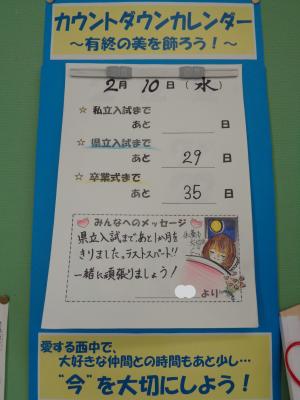 カウントダウンカレンダー
～有終の美を飾ろう！～
2月 10日（水）
☆ 私立入試まで
あと 日
☆ 県立入試まで
あと 29 日
☆ 卒業式まで
あと 35 日
みんなへのメッセージ
県立入試まで、あと1か月を
きりました。ラストスパート!!
一緒に頑張りましょう！
より
愛する西中で、
大好きな仲間との時間もあと少し…
“今”を大切にしよう！